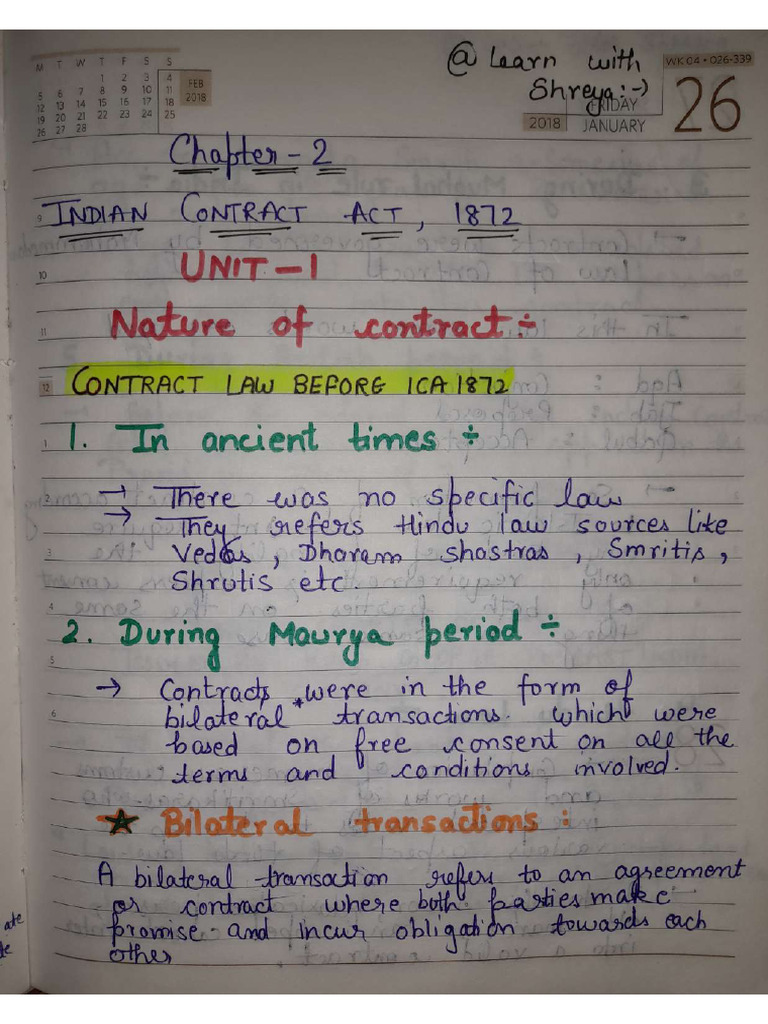 @ Learn with
Shreya :-)
M T W T F S S
1 2 3 4
5 6 7 8 9 10 11
12 13 14 15 16 17 18
19 20 21 22 23 24 25
26 27 28
FEB
2018
WK 04 • 026-339
2018
FRIDAY
JANUARY
26
Chapter - 2
9
INDIAN CONTRACT ACT, 1872
10
UNIT - 1
11
Nature of contract ÷
12
CONTRACT LAW BEFORE ICA 1872
1
1. In ancient times ÷
2
→ There was no specific law
→ They refers Hindu law sources like
3
Vedas, Dharam shastras, Smritis,
Shrutis etc.
4
2. During Maurya period ÷
5
→ Contracts were in the form of
6
bilateral * transactions. which were
based on free consent on all the
terms and conditions involved.
★ Bilateral transactions :
A bilateral transaction refers to an agreement
or contract where both parties make
promise and incur obligation towards each
other